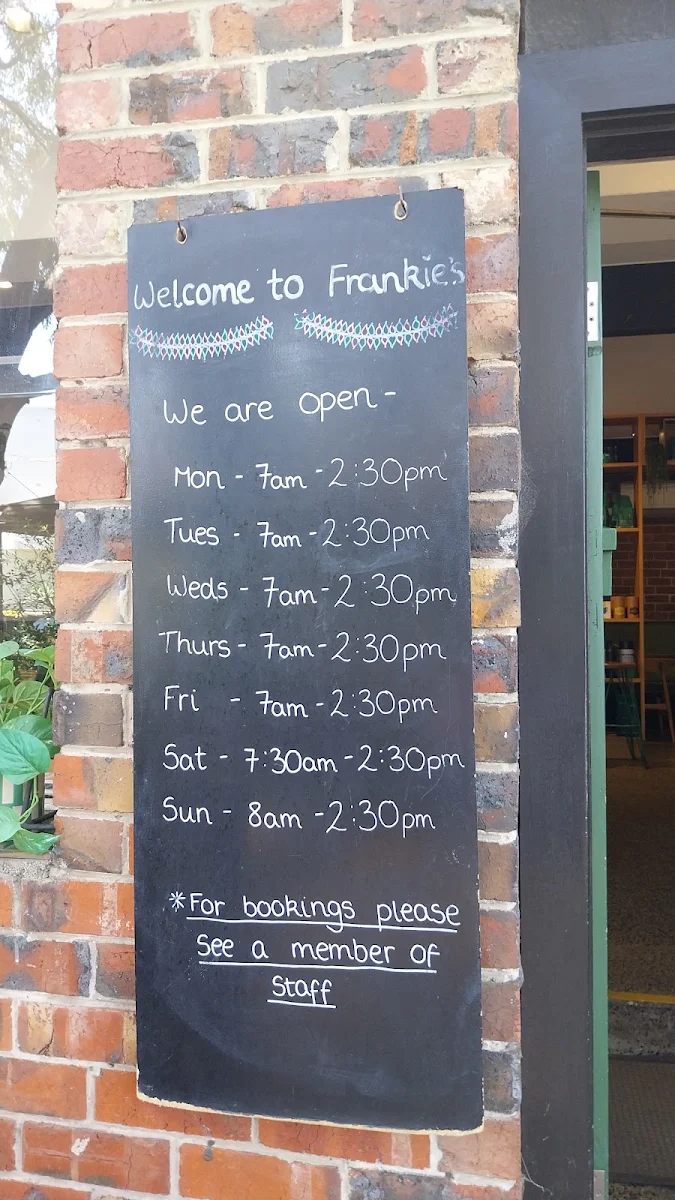 Welcome to Frankie's
We are open -
Mon - 7am - 2:30pm
Tues - 7am - 2:30pm
Weds - 7am - 2:30pm
Thurs - 7am - 2:30pm
Fri - 7am - 2:30pm
Sat - 7:30am - 2:30pm
Sun - 8am - 2:30pm
*For bookings please
See a member of
Staff